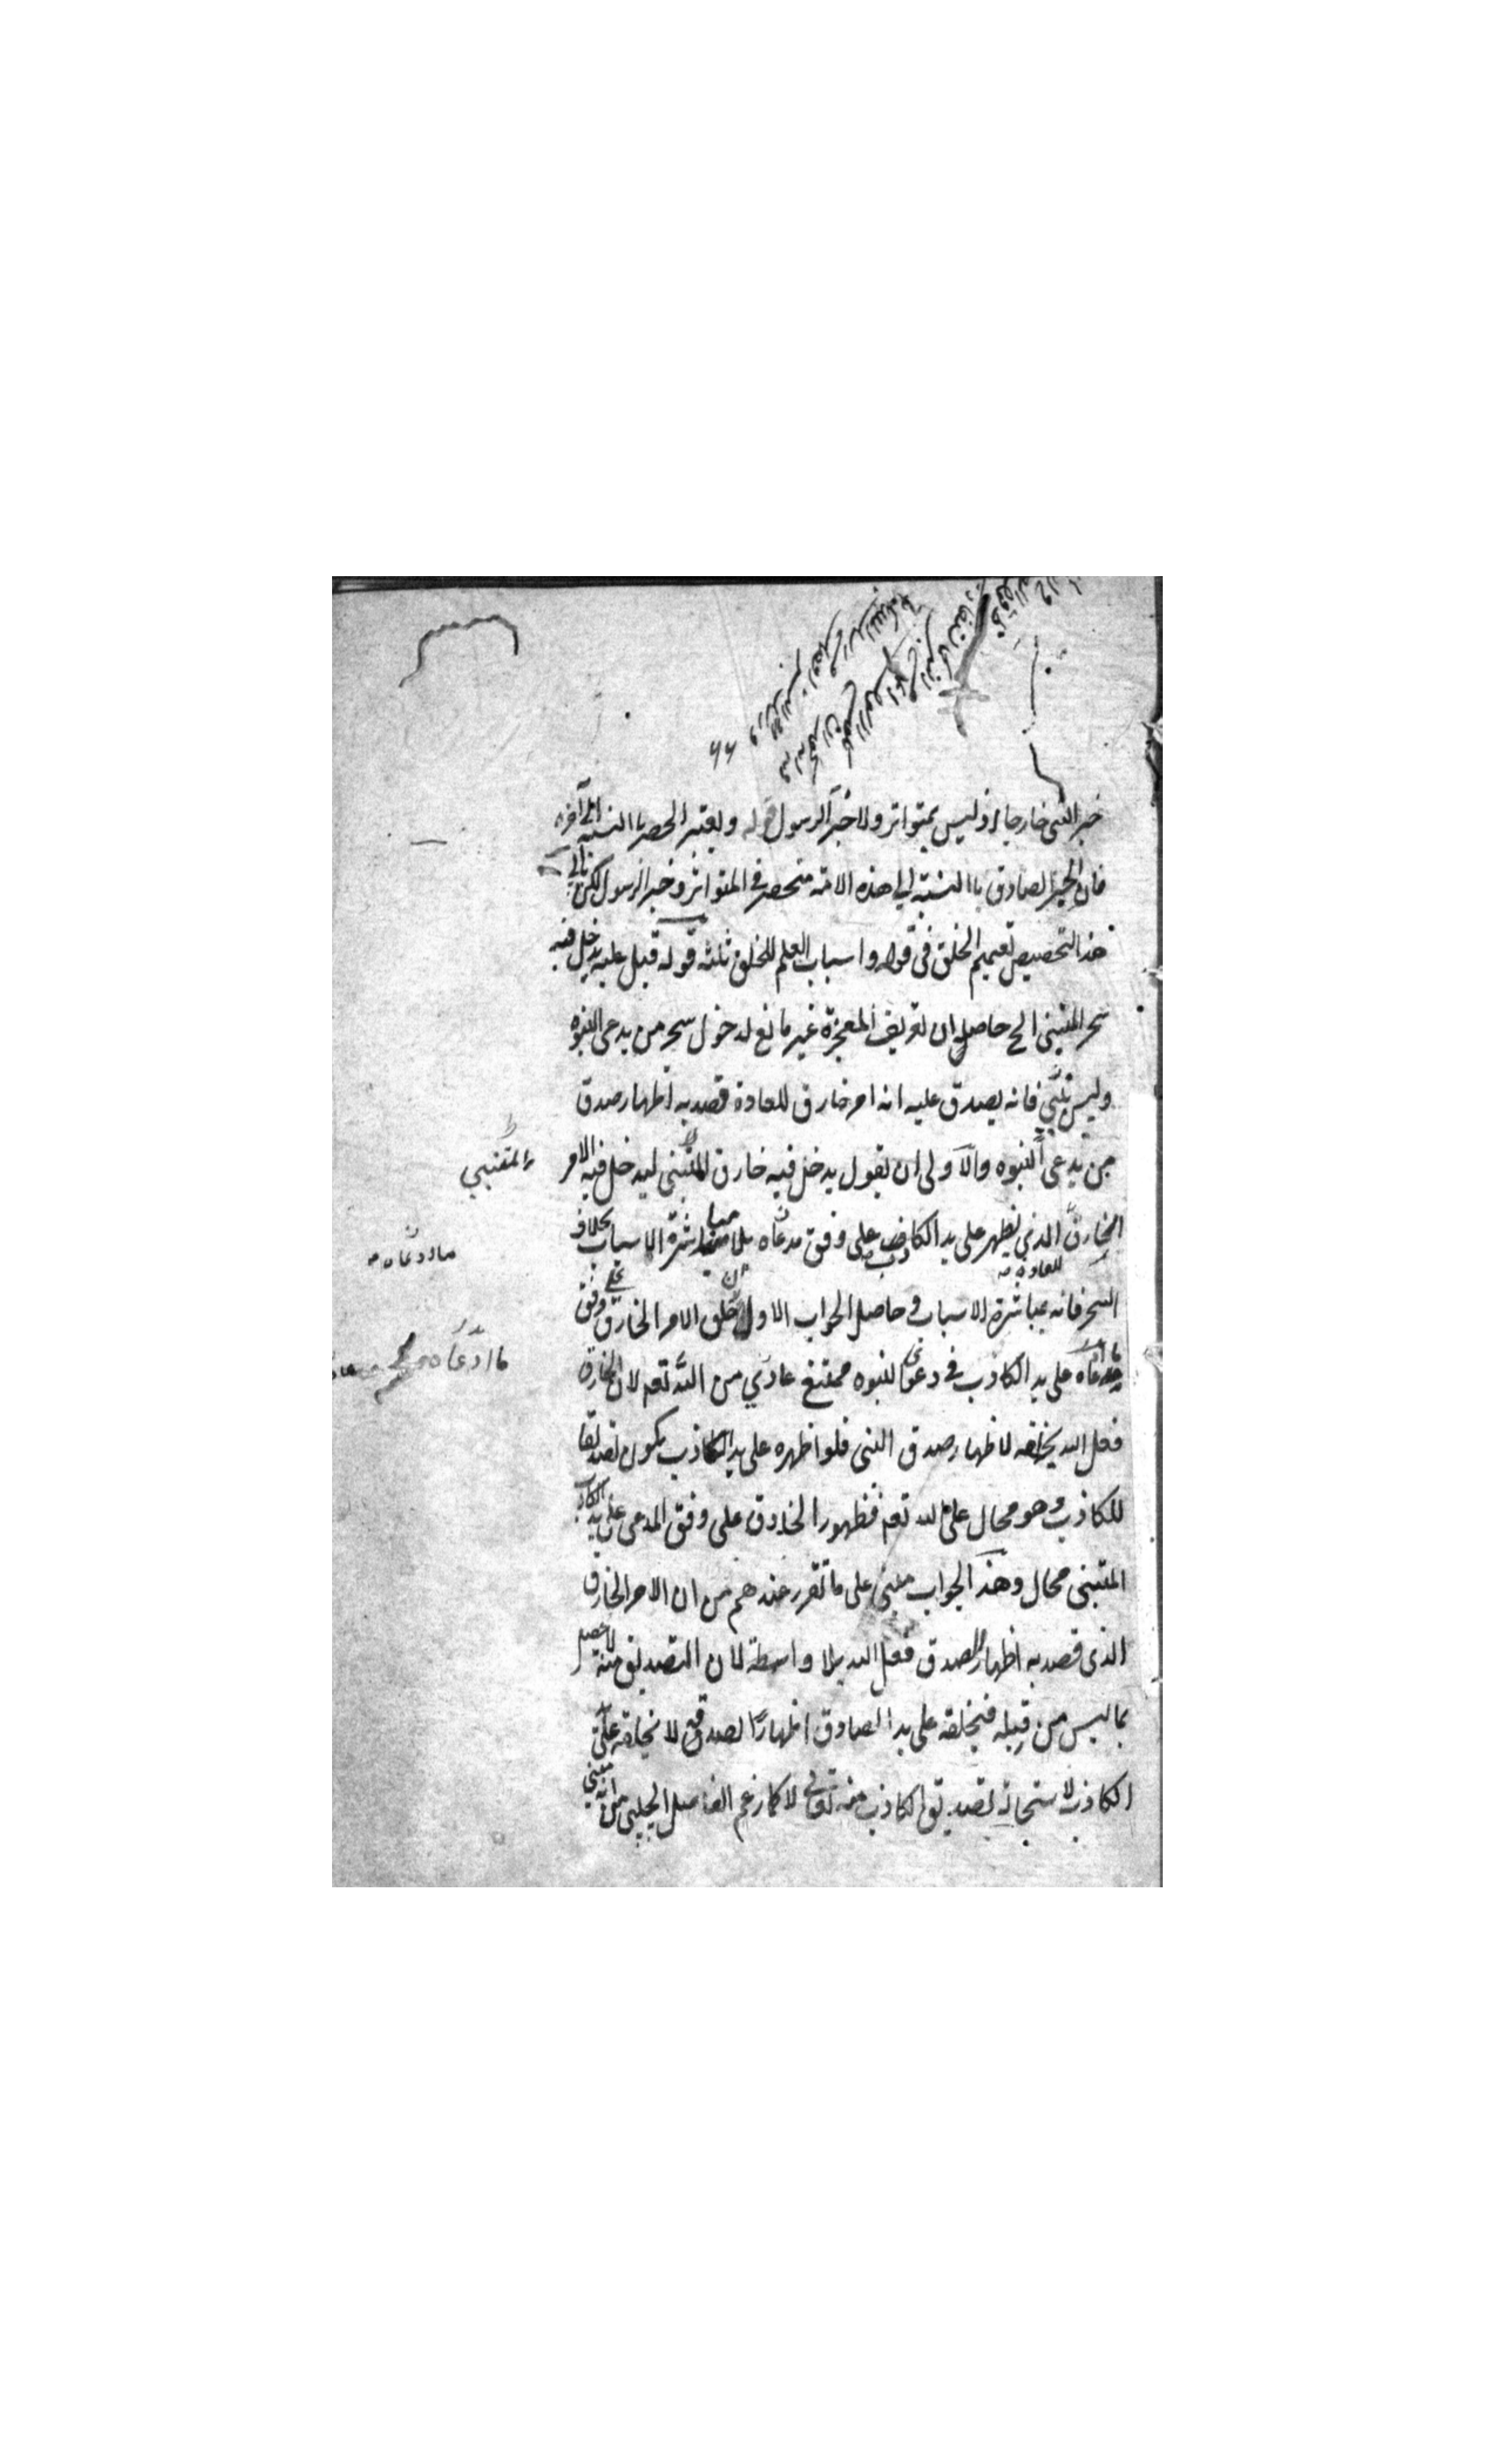 خبر النبى خارجا اذ ليس بمتواتر ولا خبر الرسول قوله ويعتبر الحصر باالنسبة الى آخره
فان الخبر الصادق باالنسبة الى هذه الامة منحصر فى المتواتر وخبر الرسول لكن يأبى
هذا التخصيص تعميم الخلق فى قوله واسباب العلم للخلق ثلثه قوله قيل عليه يدخل فيه
سحر المتنبى الخ حاصله ان تعريف المعجزة غير مانع لدخول سحر من يدعى النبوه
وليس بنبى فانه يصدق عليه انه امر خارق للعادة قصد به اظهار صدق
من يدعى النبوه والاولى ان يقول يدخل فيه خارق المتنبى ليدخل فيه الامر
المتنبي
الخارق الذى يظهر على يد الكاذب على وفق مدعاه بلا مباشرة الاسباب بخلاف
للعادة
ما ادعاه
السحر فانه بمباشرة الاسباب وحاصل الجواب الاول ان خلق الامر الخارق على وفق
ما ادعاه على يد الكاذب فى دعوى النبوه ممتنع عادى من الله تعم لان الخارق
ما ادعاه
فعل الله يخلقه لاظهار صدق النبى فلو اظهره على يد الكاذب يكون تصديقا
للكاذب وهو محال على الله تعم فظهور الخارق على وفق المدعى على يد الكاذب
المتنبى محال وهذا الجواب مبنى على ما تقرر عندهم من ان الامر الخارق
الذى قصد به اظهار الصدق فعل الله بلا واسطة لان التصديق منه لا يحصل
بما ليس من قبله فيخلقه على يد الصادق اظهارًا لصدقه لا يخلقه على
الكاذب لاستحالة تصديق الكاذب منه تعالى لا كما زعم الفاضل الجلبى من انه مبنى